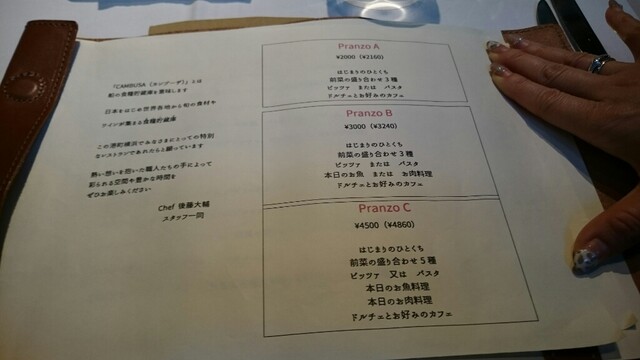 「CAMBUSA（カンブーザ）」とは
船の食糧貯蔵庫を意味します
日本をはじめ世界各地から旬の食材や
ワインが集まる食糧貯蔵庫
この港町横浜でみなさまにとっての特別
なレストランであれたらと願っています
熱い想いを抱いた職人たちの手によって
彩られる空間や豊かな時間を
ぜひお楽しみください
Chef 後藤大輔
スタッフ一同
Pranzo A
¥2000（¥2160）
はじまりのひとくち
前菜の盛り合わせ３種
ピッツァ または パスタ
ドルチェとお好みのカフェ
Pranzo B
¥3000（¥3240）
はじまりのひとくち
前菜の盛り合わせ３種
ピッツァ または パスタ
本日のお魚 または お肉料理
ドルチェとお好みのカフェ
Pranzo C
¥4500（¥4860）
はじまりのひとくち
前菜の盛り合わせ５種
ピッツァ 又は パスタ
本日のお魚料理
本日のお肉料理
ドルチェとお好みのカフェ